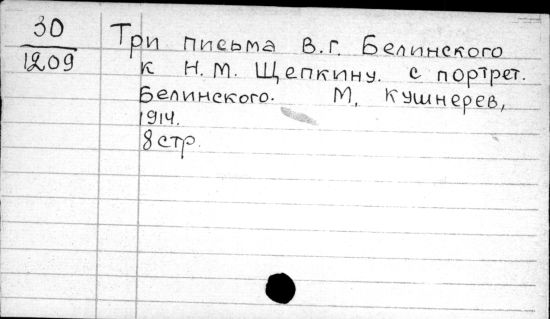 30
1209
Три письма В.Г. Белинского
к Н.М. Щепкину. с портрет.
Белинского. М, Кушнерев,
1914.
8 стр.